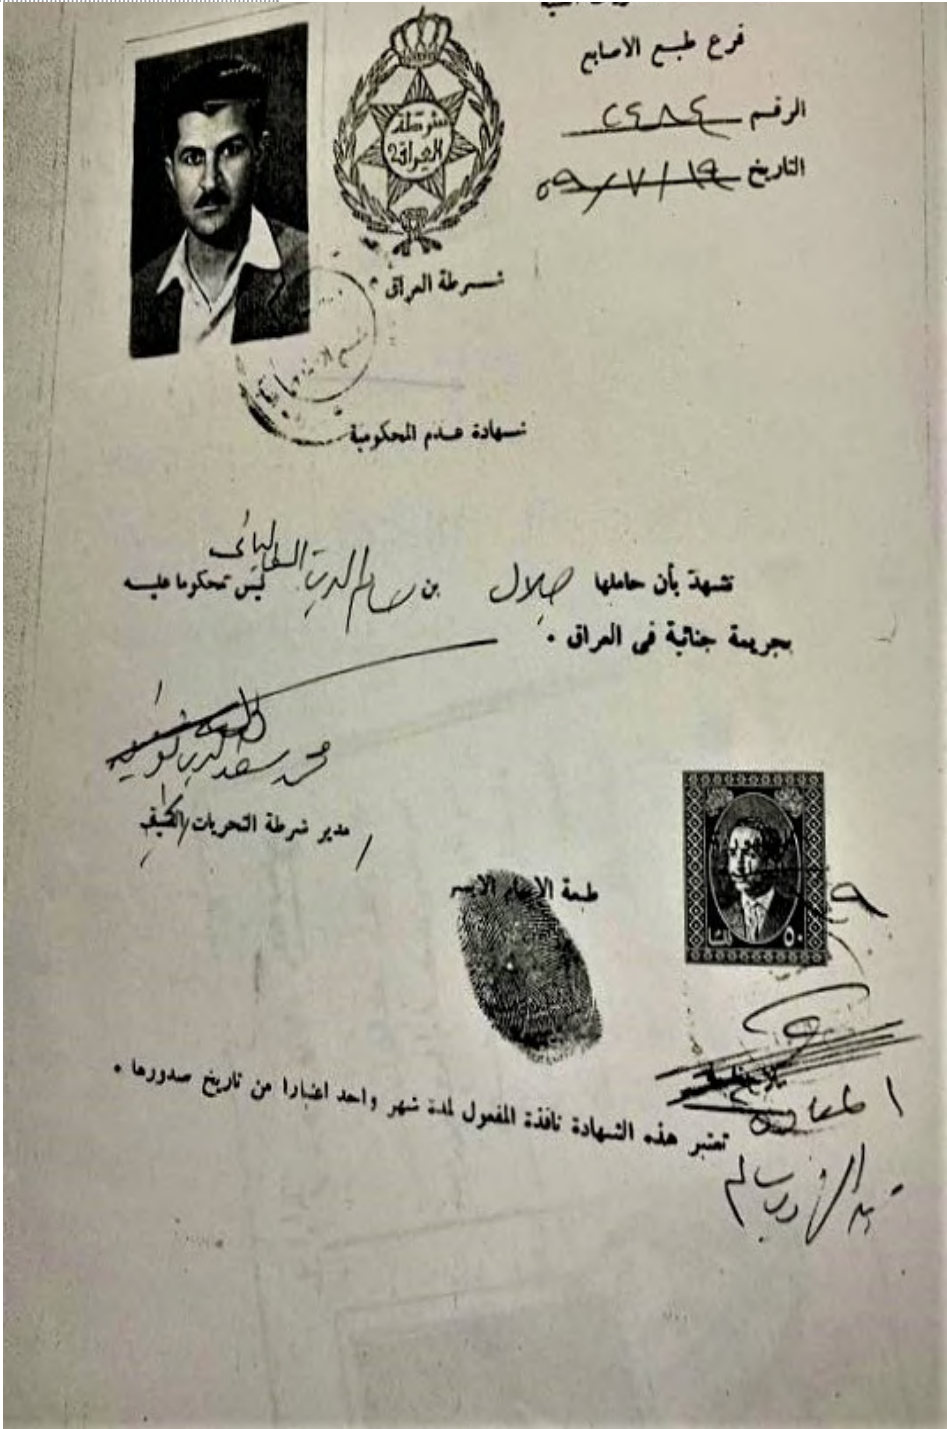 فرع طبع الاصابع
الرقم ٢٤٨٤
التاريخ ١٩/٧/٥٩
شرطة
العراقية
شرطة العراق
شهادة عدم المحكومية
نشهد بأن حاملها جلال بن حسام الدين الطالباني ليس محكوما عليه
بجريمة جنائية في العراق .
محمد سعد الدين
مدير شرطة التحريات
طبعة الابهام الايسر
٥٠ فلسا
ملاحظة
تعتبر هذه الشهادة نافذة المفعول لمدة شهر واحد اعتبارا من تاريخ صدورها .